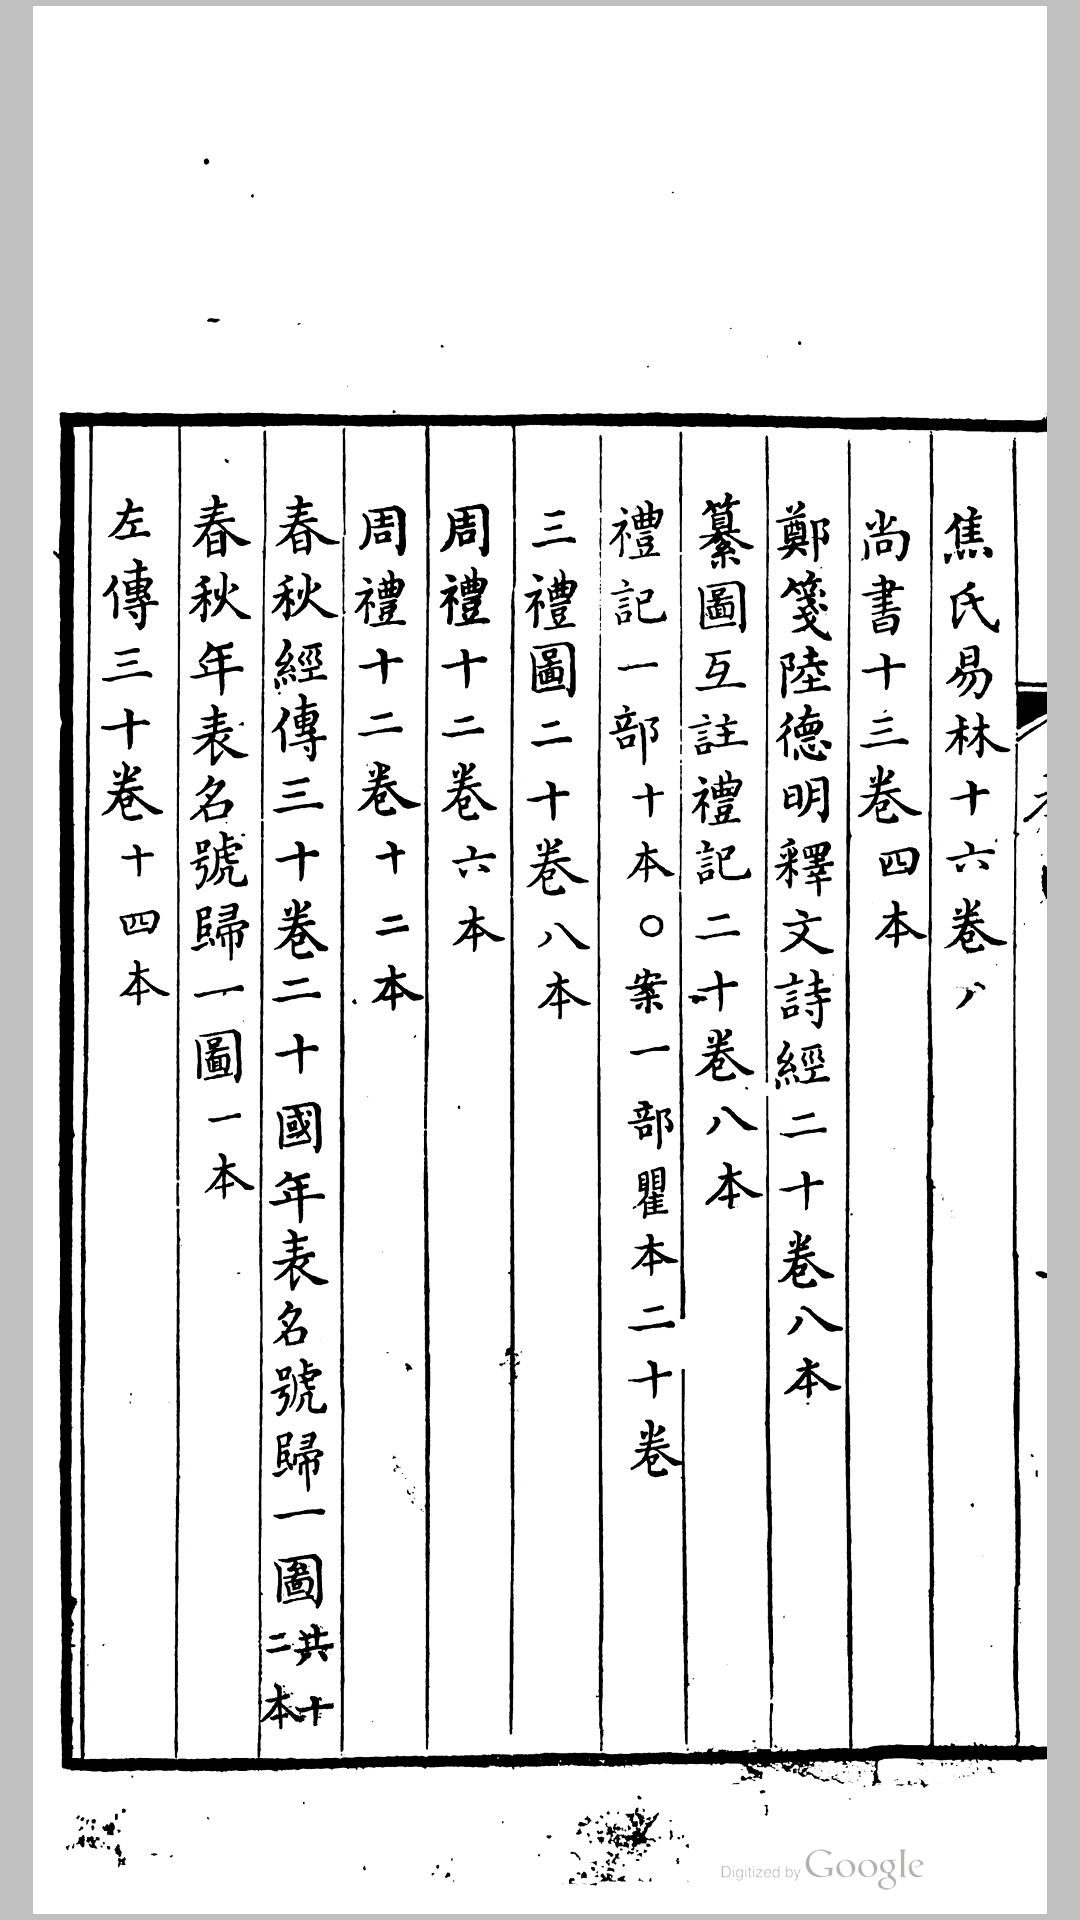 焦氏易林十六卷
尚書十三卷四本
鄭箋陸德明釋文詩經二十卷八本
纂圖互註禮記二十卷八本
禮記一部十本○案一部瞿本二十卷
三禮圖二十卷八本
周禮十二卷六本
周禮十二卷十二本
春秋經傳三十卷二十國年表名號歸一圖共十二本
春秋年表名號歸一圖一本
左傳三十卷十四本
Digitized by Google